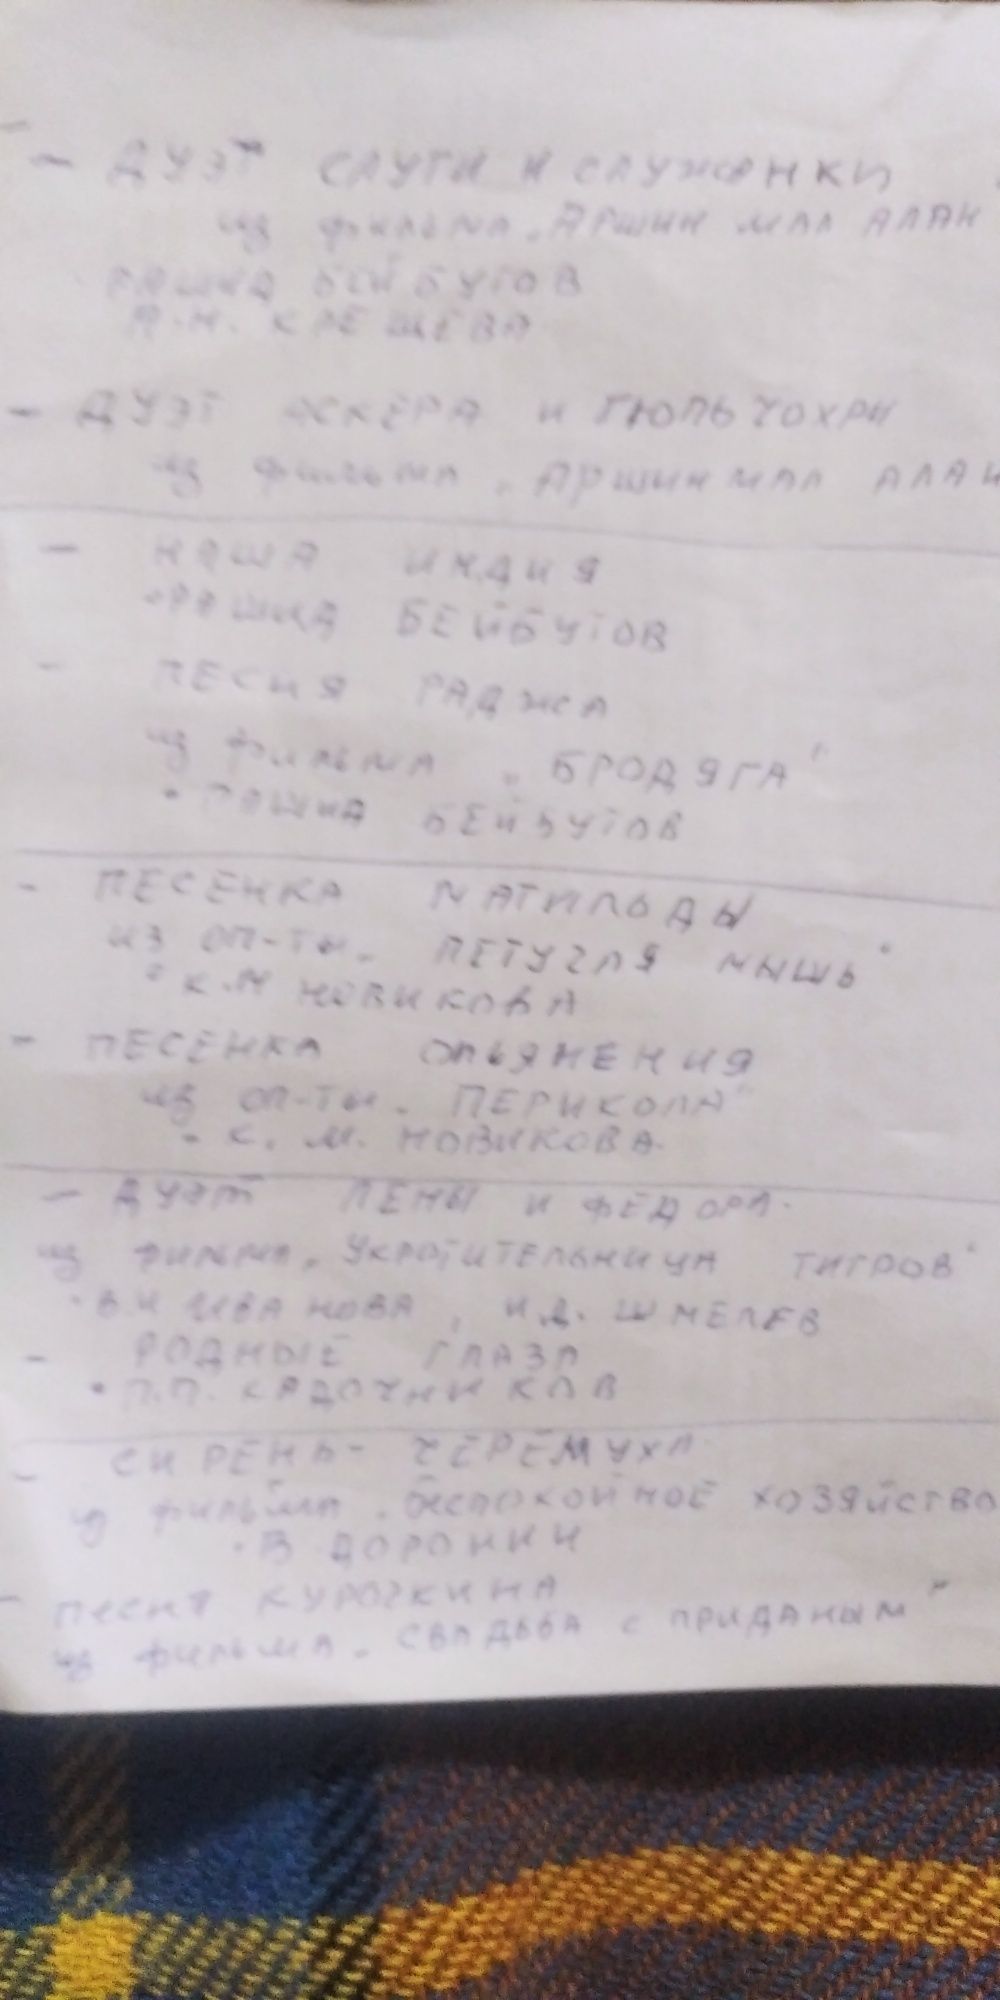 - ДУЭТ СЛУГИ И СЛУЖАНКИ
из фильма „АРШИН МАЛ АЛАН
РАШИД БЕЙБУТОВ
А.Н. КЛЕЩЁВА
- ДУЭТ АСКЕРА И ГЮЛЬЧОХРИ
из фильма „АРШИН МАЛ АЛАН
- НАША ИНДИЯ
• РАШИД БЕЙБУТОВ
- ПЕСНЯ РАДЖА
из фильма „БРОДЯГА"
• РАШИД БЕЙБУТОВ
- ПЕСЕНКА МАТИЛЬДЫ
ИЗ ОП-ТЫ „ЛЕТУЧАЯ МЫШЬ"
• К.М НОВИКОВА
- ПЕСЕНКА ОПЬЯНЕНИЯ
из ОП-ТЫ „ПЕРИКОЛА"
• К. М. НОВИКОВА
- ДУЭТ ЛЕНЫ И ФЕДОРА.
из фильма „УКРОТИТЕЛЬНИЦА ТИГРОВ"
• В.Н ИВАНОВА, И.Д. ШМЕЛЕВ
- РОДНЫЕ ГЛАЗА
• П.П. КАДОЧНИКОВ
- СИРЕНЬ - ЧЕРЁМУХА
из фильма „БЕСПОКОЙНОЕ ХОЗЯЙСТВО
• В ДОРОНИН
- ПЕСНЯ КУРОЧКИНА
из фильма „СВАДЬБА С ПРИДАНЫМ"